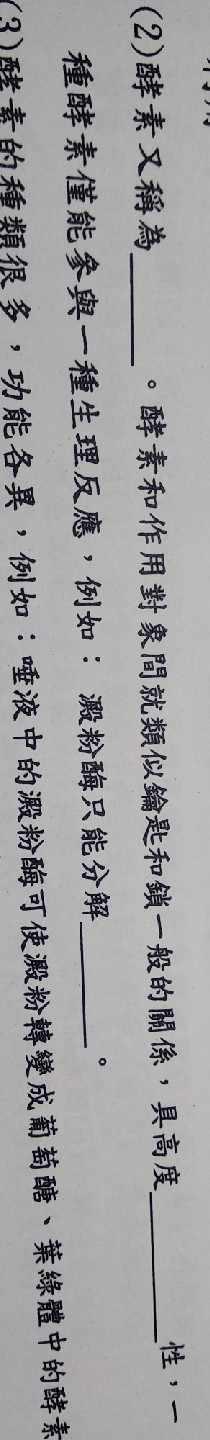 (2)酵素又稱為______。酵素和作用對象間就類似鑰匙和鎖一般的關係，具高度________性，一
種酵素僅能參與一種生理反應，例如：澱粉酶只能分解______。
(3)酵素的種類很多，功能各異，例如：唾液中的澱粉酶可使澱粉轉變成葡萄醣、葉綠體中的酵素